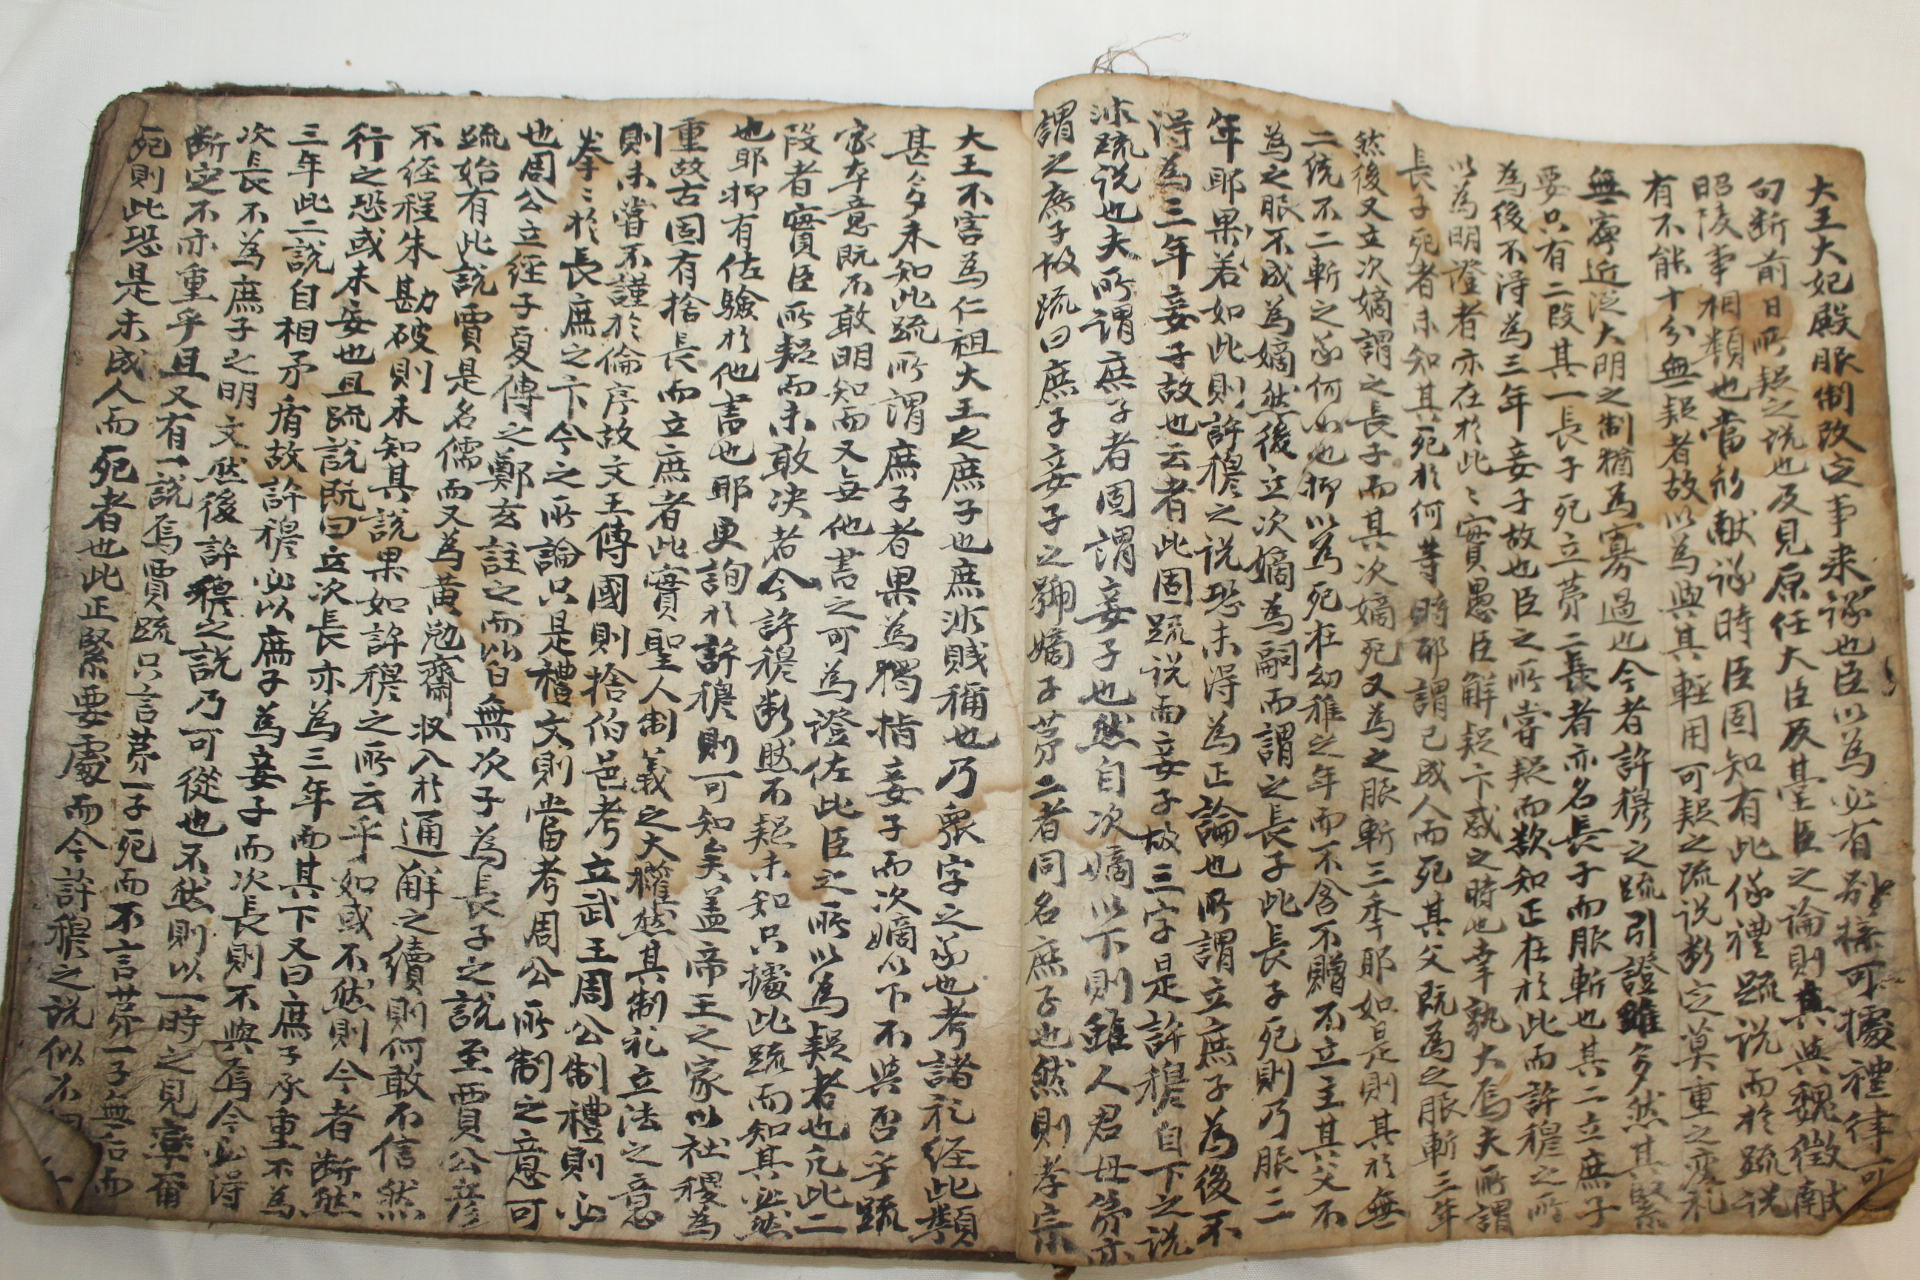 大王大妃殿服制改定事来議也臣以為必有別樣可據禮律可
句断前日所疑之説也及見原任大臣及䑓臣之論則其與魏徵獻
昭陵事相類也當初獻議時臣固知有此儀禮疏説而於疏説
有不能十分無疑者故以為與其輕用可疑之疏説断定莫重之変礼
無寧近泛大明之制猶為寡過也今者許穆之疏引證雖多然其緊
要只有二段其一長子死立第二長者亦名長子而服斬也其二立庶子
為後不淂為三年妾子故也臣之所嘗疑而欲知正在於此而許穆之所
以為明證者亦在於此〻實愚臣解疑卞惑之時也幸孰大焉夫所謂
長子死者未知其死於何等時耶謂已成人而死其父既為之服斬三年
然後又立次嫡謂之長子而其次嫡死又為之服斬三年耶如是則其於無
二統不二斬之義何如也抑以為死在幼稚之年而不含不贈不立主其父不
為之服不成為嫡然後立次嫡為嗣而謂之長子此長子死則乃服三
年耶果若如此則許穆之説恐未淂為正論也所謂立庶子為後不
淂為三年妾子故也云者此固疏説而妾子故三字是許穆自下之説
非疏説也夫所謂庶子者固謂妾子也然自次嫡以下則雖人君母弟亦
謂之庶子故疏曰庶子妾子之號嫡子第二者同名庶子也然則孝宗
大王不害為仁祖大王之庶子也庶非賎稱也乃衆字之義也考諸礼経此類
甚多未知此疏所謂庶子者果為獨指妾子而次嫡以下不與否乎疏
家本意既不敢明知而又無他書之可為證佐此臣之所以為疑者也凡此二
段者實臣所疑而未敢决者今許穆断然不疑未知只據此疏而知其必然
也耶抑有佐驗於他書也耶更詢於許穆則可知矣盖帝王之家以社稷為
重故古固有捨長而立庶者此實聖人制義之大權然其制礼立法之意
則未嘗不謹於倫序故文王傳國則捨伯邑考立武王周公制禮則必
拳〻於長庶之卞今之所論只是禮文則當考周公所制之意可
也周公立経子夏傳之鄭玄註之而以曰無次子為長子之説至賈公彦
疏始有此説賈是名儒而又為黄勉齋収入於通解之續則何敢不信然
不経程朱勘破則未知其説果如許穆之所云乎如或不然則今者断然
行之恐或未妥也且疏説既曰立次長亦為三年而其下又曰庶子承重不為
三年此二説自相矛盾故許穆必以庶子為妾子而次長則不與焉今必淂
次長不為庶子之明文然後許穆之説乃可從也不然則以一時之見率爾
断定不亦重乎且又有一説焉賈疏只言第一子死而不言第一子無后而
死則此恐是未成人而死者也此正緊要處而今許穆之説似不